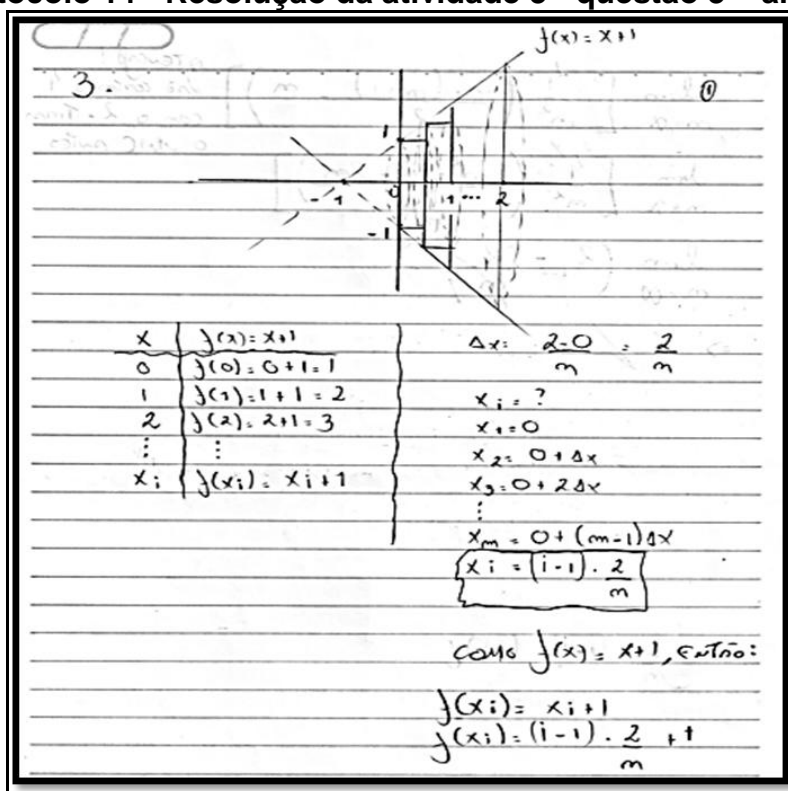 Resolução da atividade 3 - questão 3 -
f(x) = x+1
3.
①
1
0
-1
1 ... 2
-1
x | f(x) = x+1
0 | f(0) = 0+1 = 1
1 | f(1) = 1+1 = 2
2 | f(2) = 2+1 = 3
⋮ ⋮
xi | f(xi) = xi+1
Δx = 2-0/m = 2/m
xi = ?
x1 = 0
x2 = 0+Δx
x3 = 0+2Δx
⋮
xm = 0+(m-1)Δx
xi = (i-1) . 2/m
COMO f(x) = x+1, ENTÃO:
f(xi) = xi+1
f(xi) = (i-1) . 2/m + 1